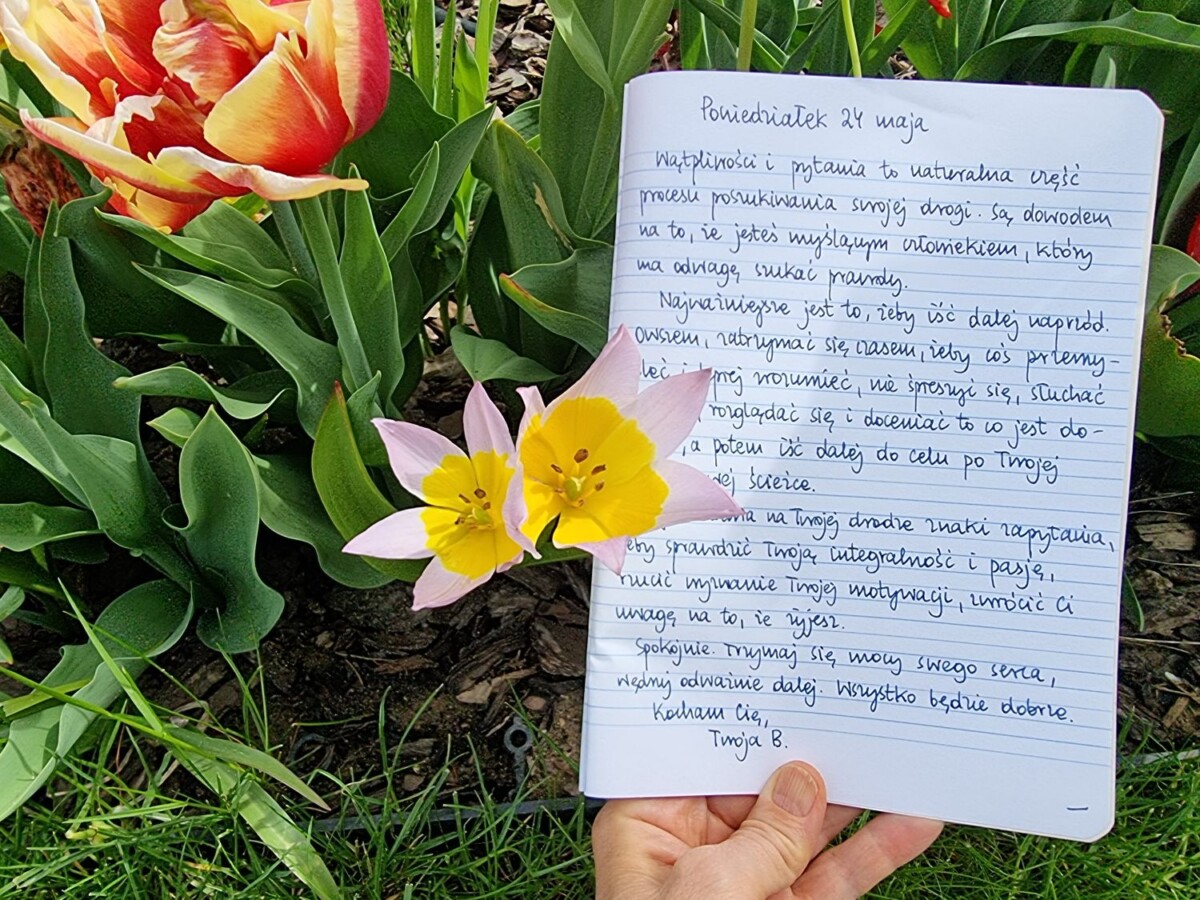 Poniedziałek 24 maja
Wątpliwości i pytania to naturalna część
procesu poszukiwania swojej drogi. Są dowodem
na to, że jesteś myślącym człowiekiem, który
ma odwagę szukać prawdy.
Najważniejsze jest to, żeby iść dalej naprzód.
Owszem, zatrzymać się czasem, żeby coś przemy-
leć i zrozumieć, nie śpieszyć się, słuchać
rozglądać się i doceniać to co jest do-
, a potem iść dalej do celu po Twojej
ścieżce.
na Twojej drodze znaki zapytania,
żeby sprawdzić Twoją integralność i pasję,
rzucić wyzwanie Twojej motywacji, zwrócić Ci
uwagę na to, że żyjesz.
Spokojnie. Trzymaj się mocy swego serca,
wędruj odważnie dalej. Wszystko będzie dobrze.
Kocham Cię,
Twoja B.